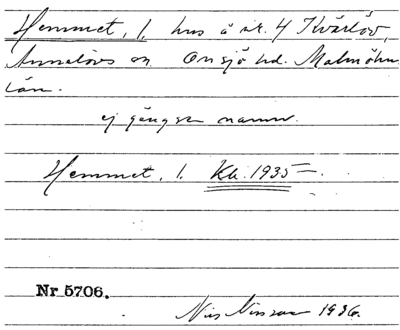 Hemmet, 1. hus å nr. 4 Kvärlöv,
Annelövs sn. Onsjö hd. Malmöhus
län.
ej gängse namn.
Hemmet, 1. Kb. 1935 —.
Nr 5706.
Nils Nilsson 1936.